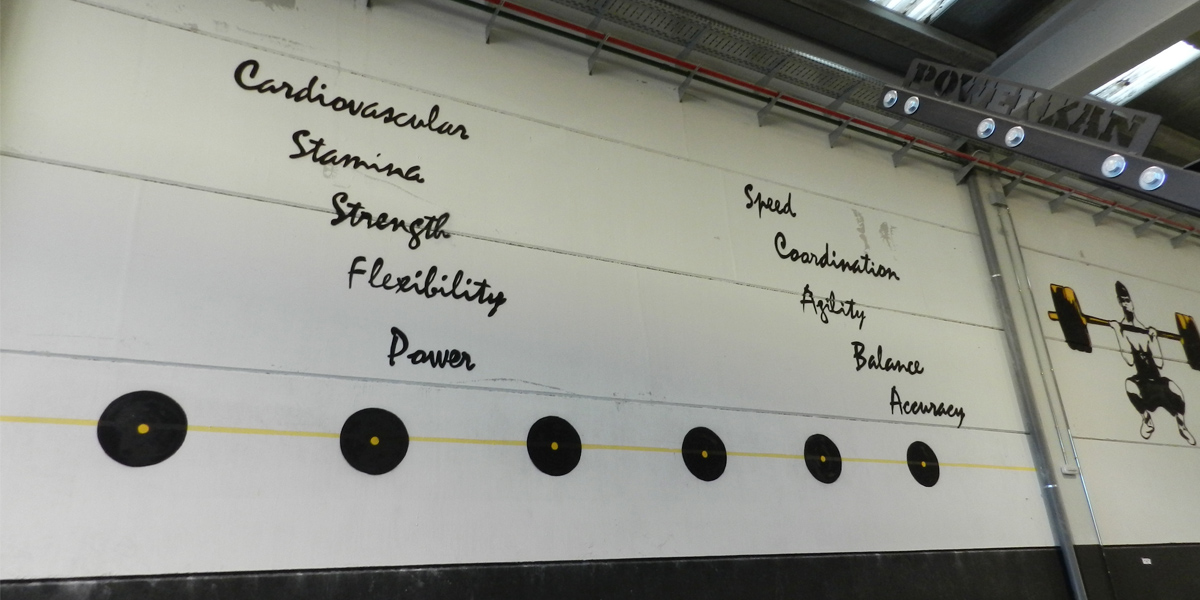 Cardiovascular
Stamina
Strength
Flexibility
Power
Speed
Coordination
Agility
Balance
Accuracy
POWERKAN